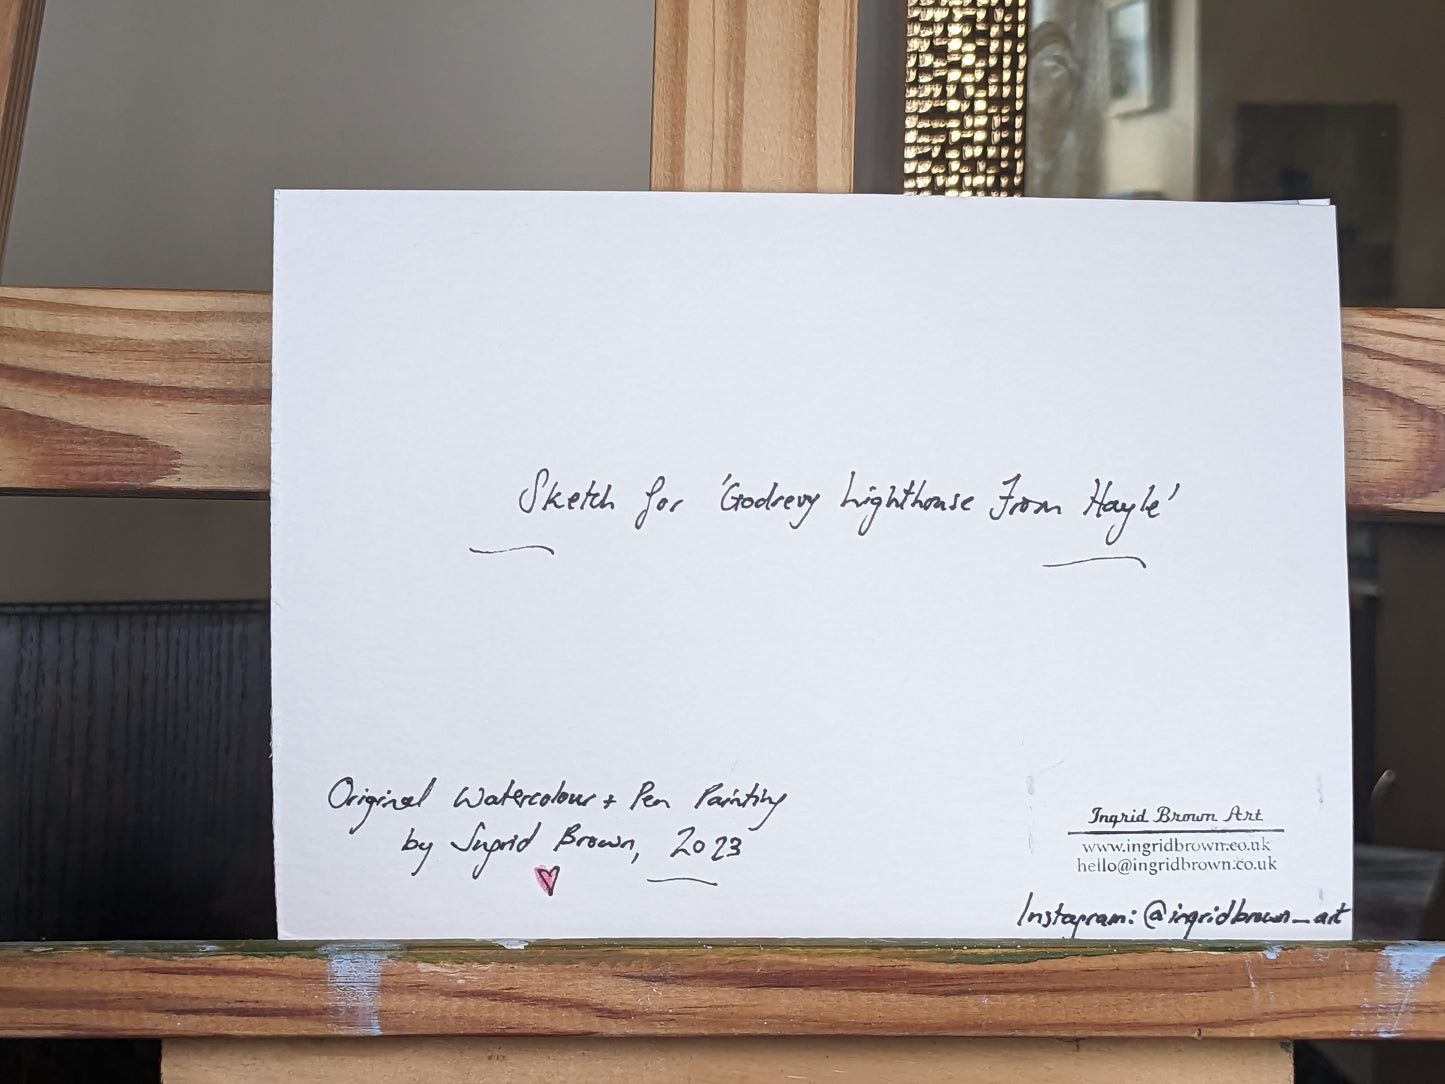 Sketch for 'Godrevy Lighthouse From Hayle'
Original Watercolour + Pen Painting
by Ingrid Brown, 2023
Ingrid Brown Art
www.ingridbrown.co.uk
hello@ingridbrown.co.uk
Instagram: @ingridbrown_art